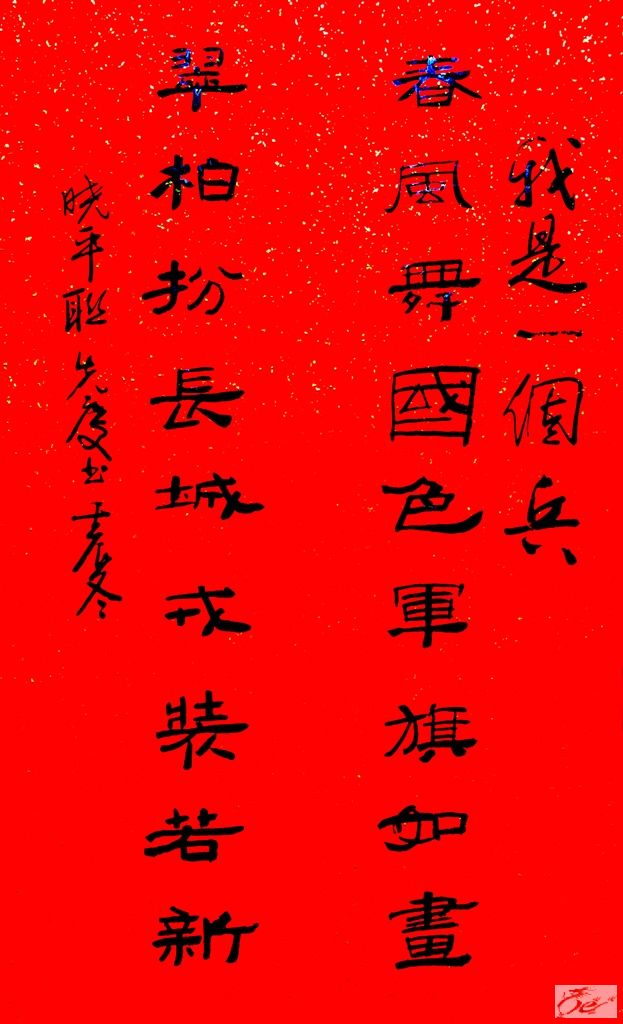 我是一個兵
春風舞國色軍旗如畫
翠柏扮長城戎裝若新
晓平聯 先书 壬辰冬